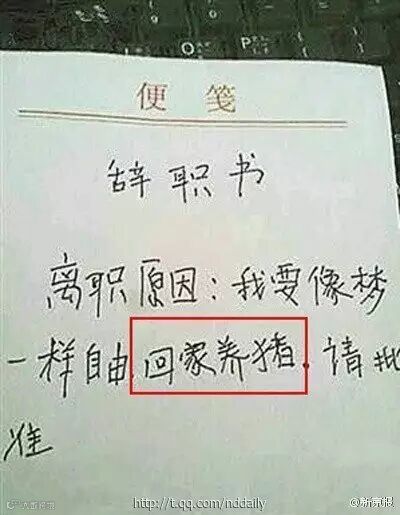 便笺
辞职书
离职原因：我要像梦
一样自由.回家养猪.请批
准
http://t.qq.com/nddaily
@新京报